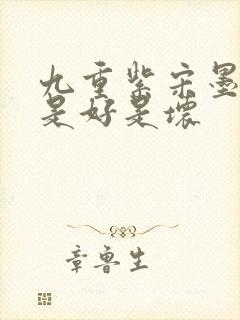 九重紫宋墨
是好是坏
章鲁生